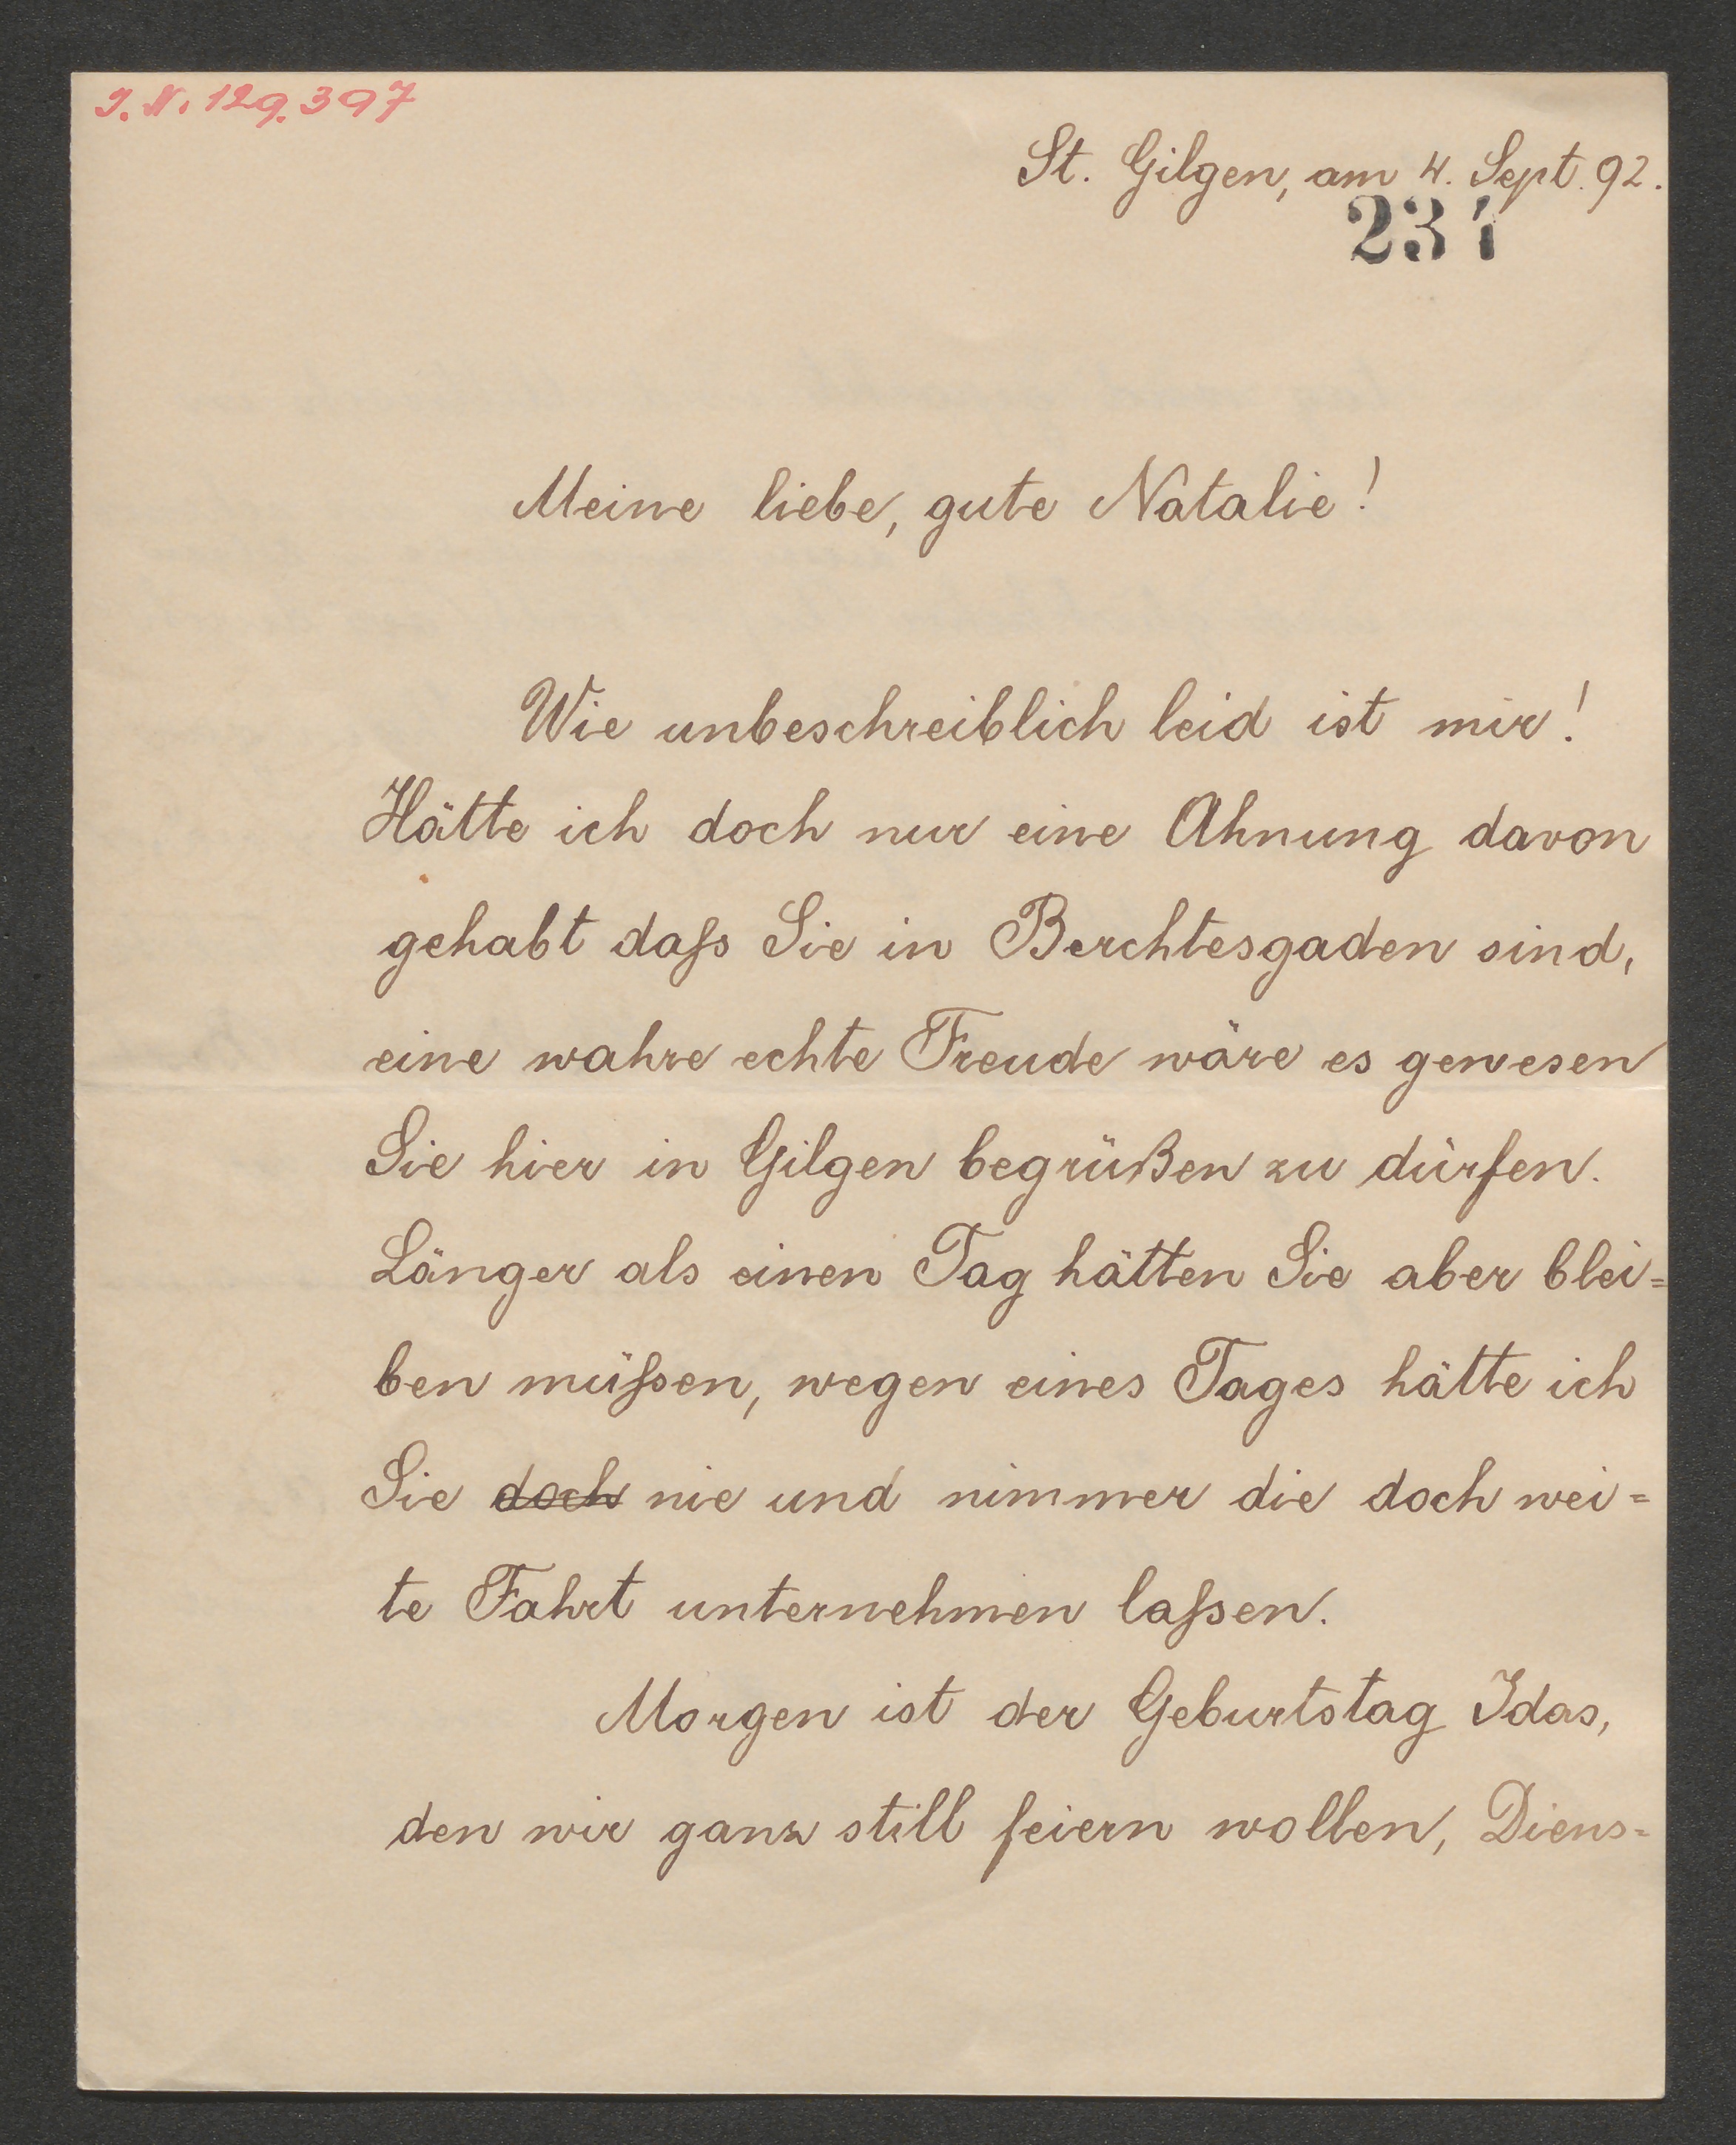 I. N. 129.397
St. Gilgen, am 4. Sept. 92.
231
Meine liebe, gute Natalie!
Wie unbeschreiblich leid ist mir!
Hätte ich doch nur eine Ahnung davon
gehabt daſs Sie in Berchtesgaden sind,
eine wahre echte Freude wäre es gewesen
Sie hier in Gilgen begrüßen zu dürfen.
Länger als einen Tag hätten Sie aber blei=
ben müſsen, wegen eines Tages hätte ich
Sie doch nie und nimmer die doch wei=
te Fahrt unternehmen laſsen.
Morgen ist der Geburtstag Idas,
den wir ganz still feiern wollen, Diens=